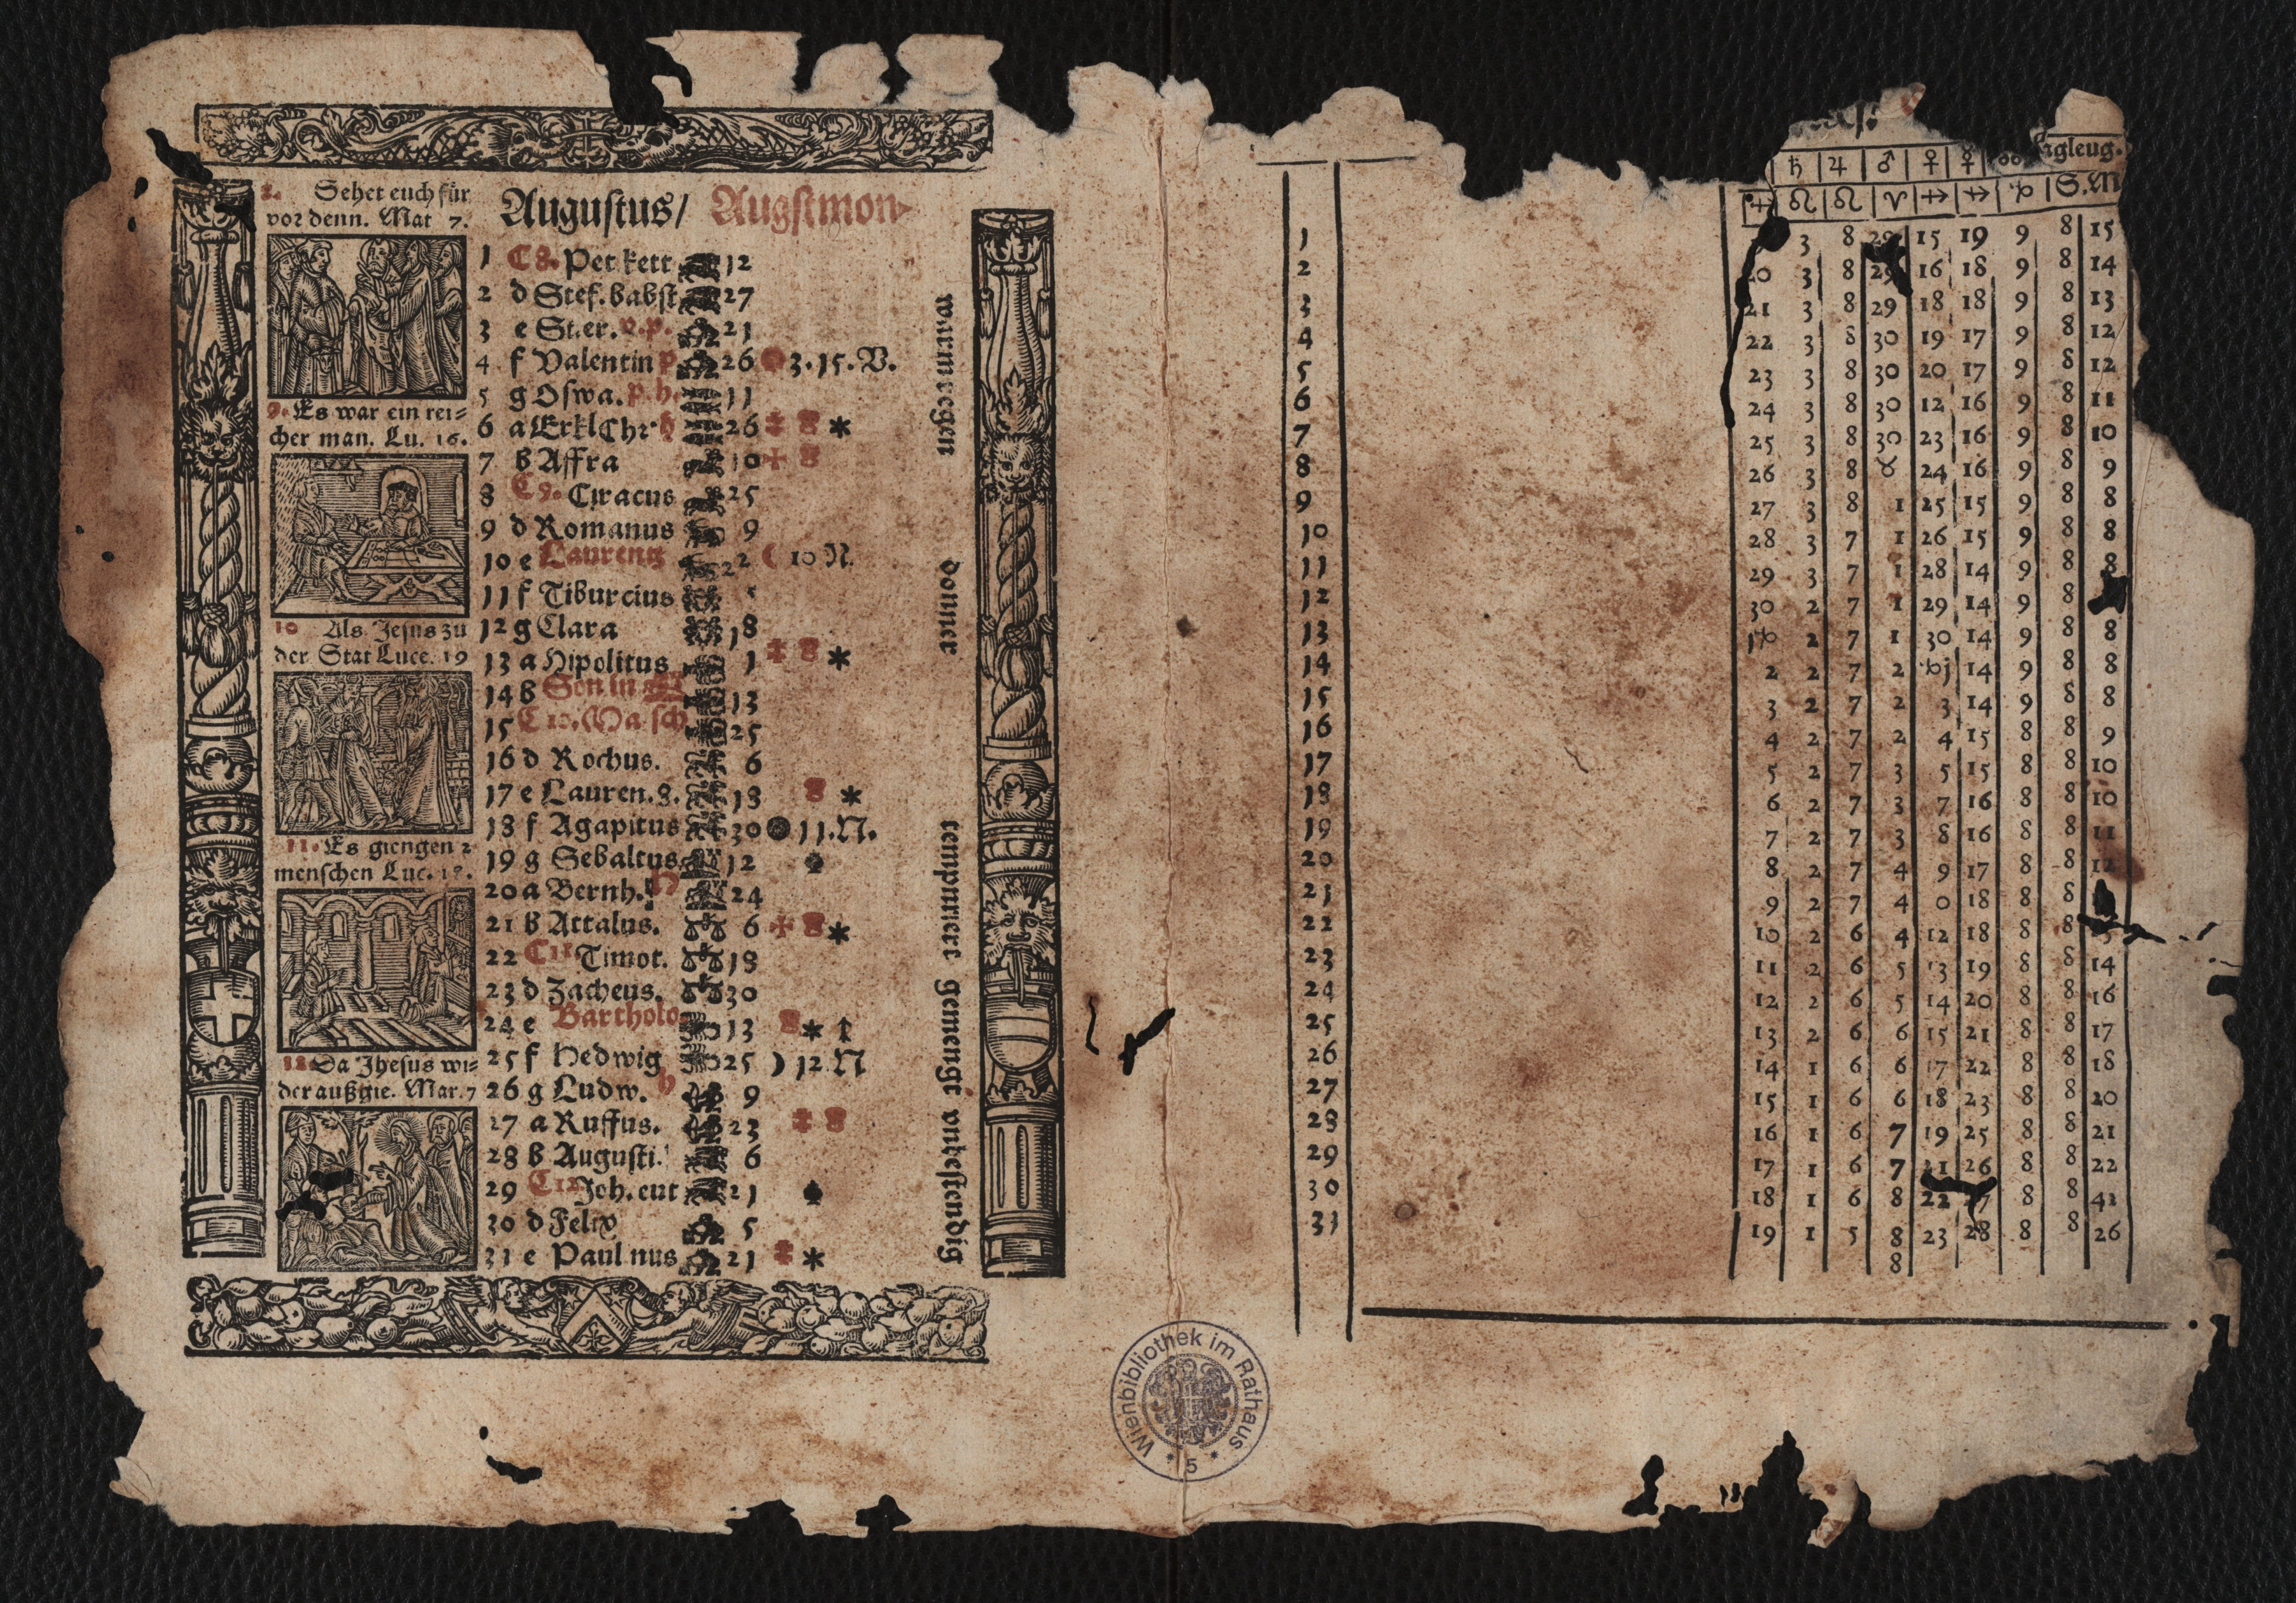 Sehet euch für
vor denn. Mat 7.
9. Es war ein rei=
cher man. Lu. 16.
10 Als Jesus zu
der Stat Luce. 19
11. Es giengen 2
menschen Luc. 18.
12 Da Jhesus wi=
der außgie. Mar. 7
Augustus/ Augstmon
1 C 8. Pet kett 12
2 d Stef. babst 27
3 e St.er. p. 21
4 f Valentin p 26 3. 15. V.
5 g Oswa. p. h. 11
6 a Erkl Chr h 26 *
7 b Affra 10
8 C 9. Ciracus 25
9 d Romanus 9
10 e Laurentz 22 ( 10 N.
11 f Tiburcius
12 g Clara 18
13 a Hipolitus 1 *
14 b Son in 13
15 C 10. Ma sch 25
16 d Rochus. 6
17 e Lauren. 8. 18 *
18 f Agapitus 30 11. N.
19 g Sebaltus 12
20 a Bernh. 24
21 b Attalus. 6 *
22 C 11 Timot. 18
23 d Zacheus. 30
24 e Bartholo 13 *
25 f Hedwig 25 ) 12 N
26 g Ludw. 9
27 a Ruffus. 23
28 b Augusti. 6
29 C 12 Joh. ent 21
30 d Felix 5
31 e Paulinus 21 *
warm regen donner temperiert gemengt vnbestendig
♄ ♃ ♂ ♀ ☿ agleug.
♌ ♌ ♈ ♐ ♐ S. M
1 3 8 29 15 19 9 8 15
2 20 3 8 29 16 18 9 8 14
3 21 3 8 29 18 18 9 8 13
4 22 3 8 30 19 17 9 8 12
5 23 3 8 30 20 17 9 8 12
6 24 3 8 30 12 16 9 8 11
7 25 3 8 30 23 16 9 8 10
8 26 3 8 ♉ 24 16 9 8 9
9 27 3 8 1 25 15 9 8 8
10 28 3 7 1 26 15 9 8 8
11 29 3 7 1 28 14 9 8 8
12 30 2 7 1 29 14 9 8
13 2 7 1 30 14 9 8 8
14 2 2 7 2 14 9 8 8
15 3 2 7 2 3 14 9 8 8
16 4 2 7 2 4 15 8 8 9
17 5 2 7 3 5 15 8 8 10
18 6 2 7 3 7 16 8 8 10
19 7 2 7 3 8 16 8 8 11
20 8 2 7 4 9 17 8 8 12
21 9 2 7 4 0 18 8 8
22 10 2 6 4 12 18 8 8 13
23 11 2 6 5 13 19 8 8 14
24 12 2 6 5 14 20 8 8 16
25 13 2 6 6 15 21 8 8 17
26 14 1 6 6 17 22 8 8 18
27 15 1 6 6 18 23 8 8 20
28 16 1 6 7 19 25 8 8 21
29 17 1 6 7 21 26 8 8 22
30 18 1 6 8 22 27 8 8 42
31 19 1 5 8 23 28 8 8 26
8
Wienbibliothek im Rathaus
* 5 *